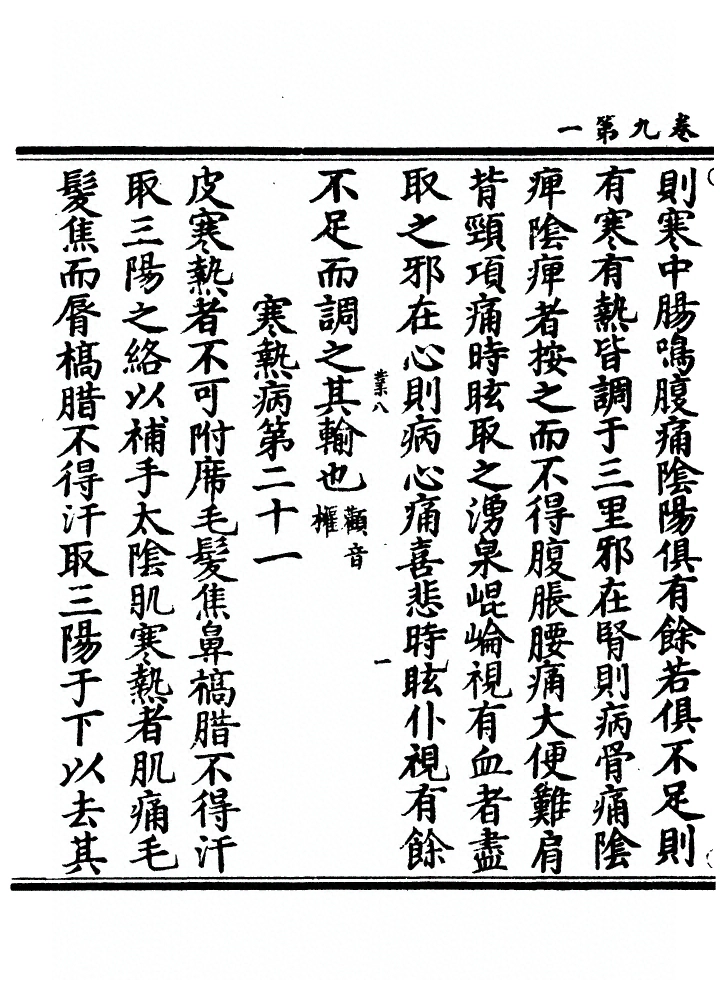 卷九第一
則寒中腸鳴腹痛陰陽俱有餘若俱不足則
有寒有熱皆調于三里邪在腎則病骨痛陰
痺陰痺者按之而不得腹脹腰痛大便難肩
背頸項痛時眩取之湧泉崐崘視有血者盡
取之邪在心則病心痛喜悲時眩仆視有餘
業八
一
不足而調之其輸也顴音權
寒熱病第二十一
皮寒熱者不可附席毛髮焦鼻槁腊不得汗
取三陽之絡以補手太陰肌寒熱者肌痛毛
髮焦而脣槁腊不得汗取三陽于下以去其